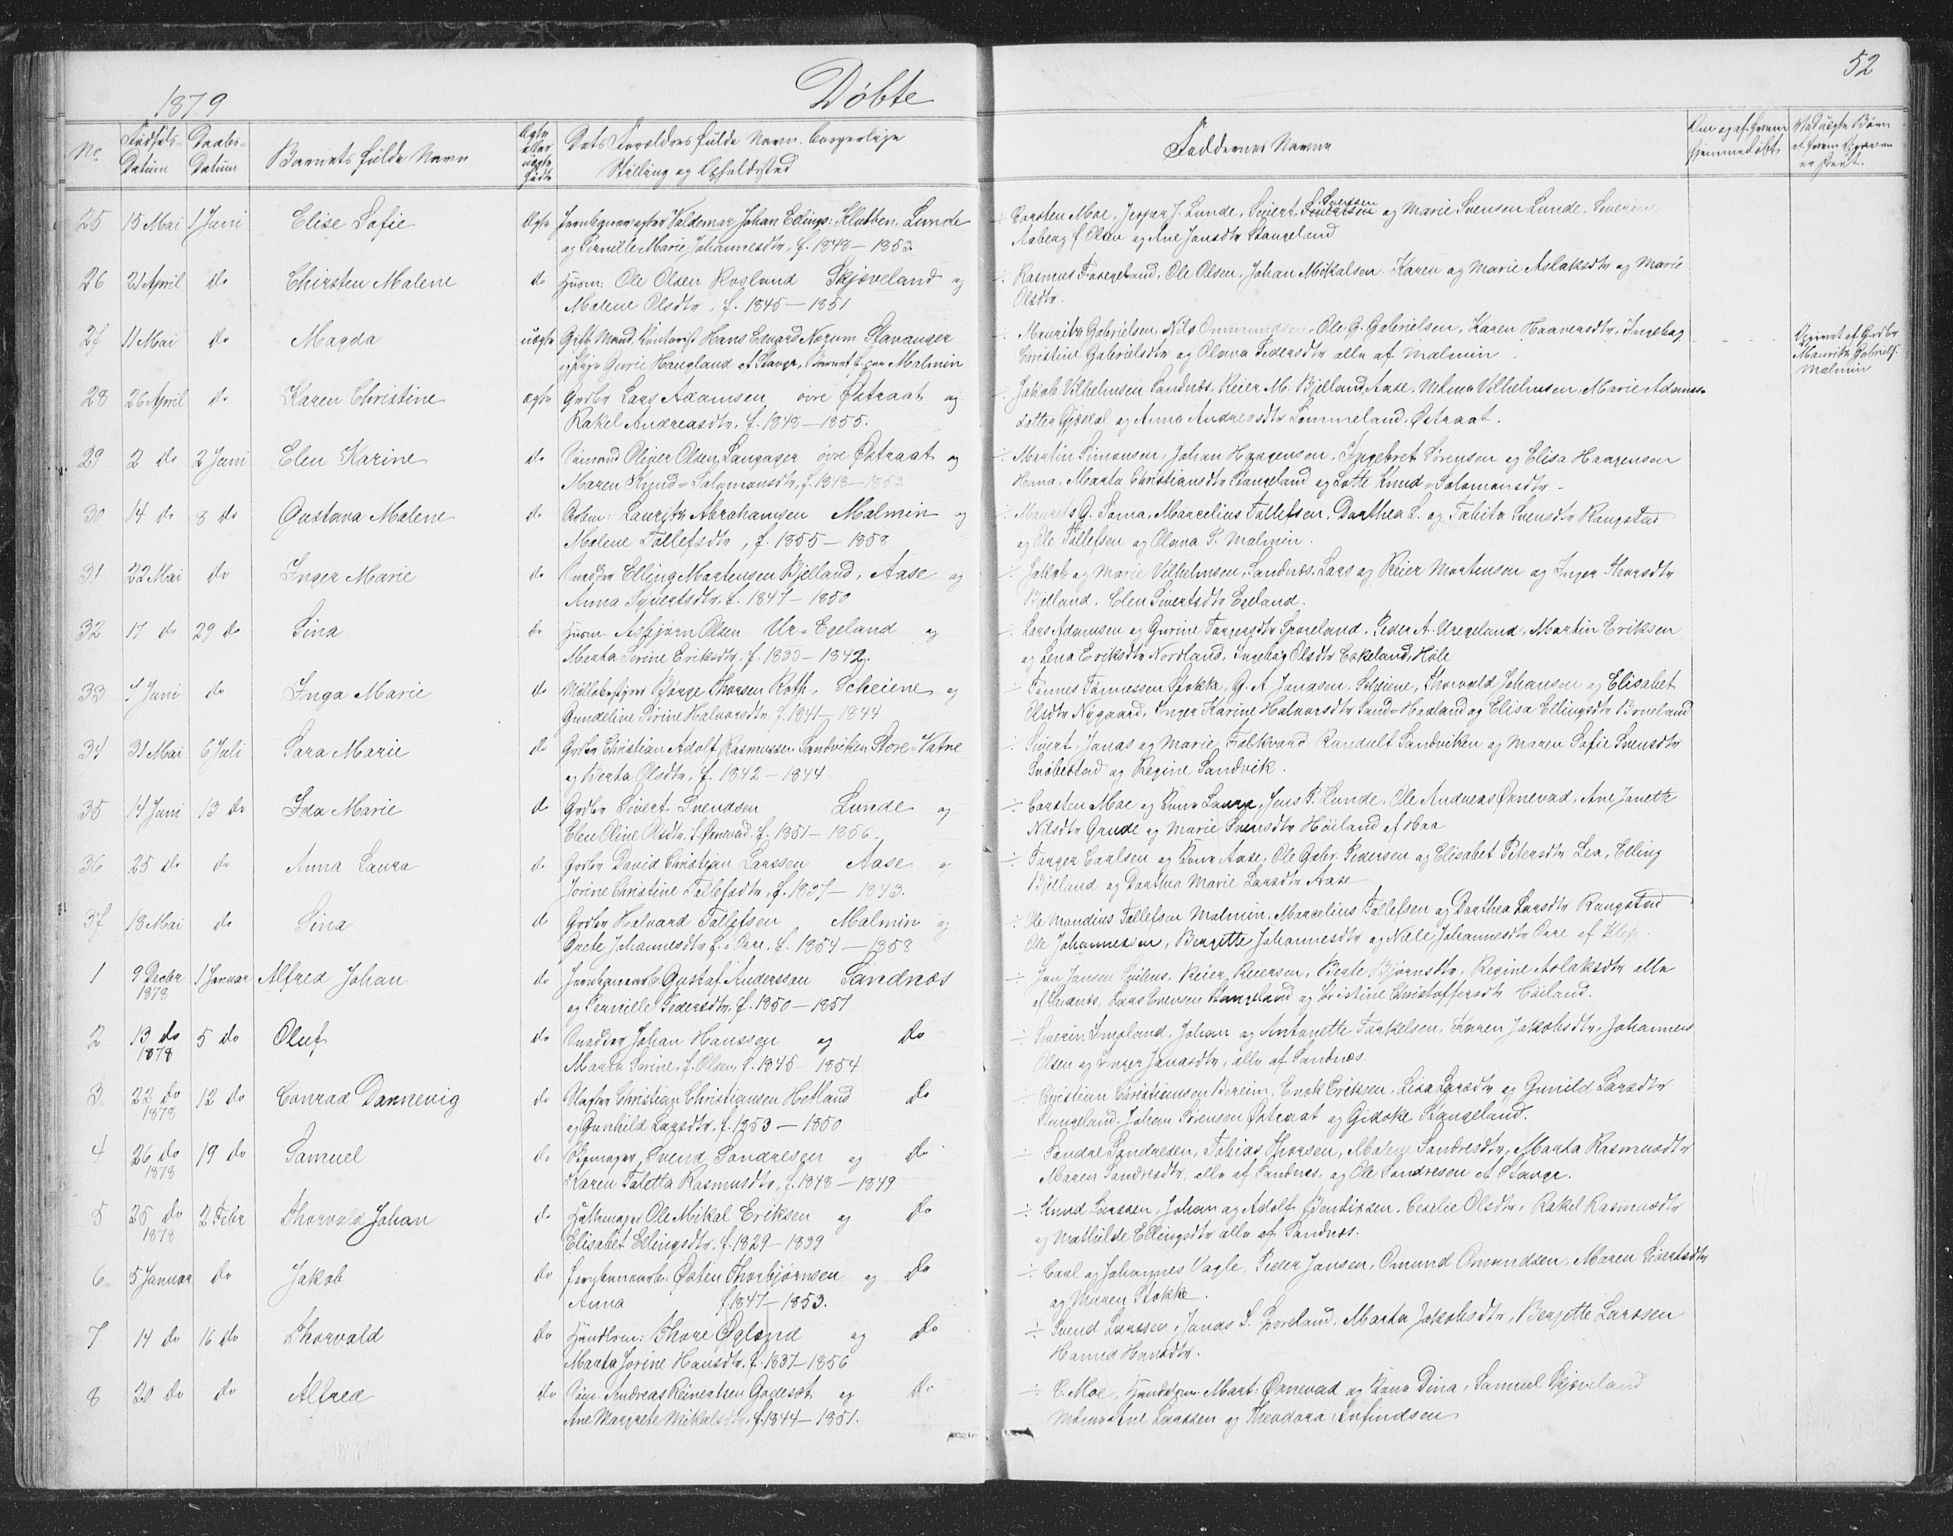 1879
Døbte
52
No.
Fødsels-
Datum
Daabs-
Datum
Barnets fulde Navn
Ægte
eller
uægte
fødte
Dets Forældres fulde Navn, borgerlige
Stilling og Opholdssted
Faddernes Navne
Om og af hvem
hjemmedøbt
25 15 Mai 1 Juni Elise Sofie Ægte Valdemar Johan Klubben, Lunde
og Pernille Marie Johannesdtr, f. 1848 – 1853
÷ Carsten Moe, Jesper J. Lunde, Sivert Svensen og Marie Svensen Lunde,
Aaberg f. Olsen og Ane Jansdtr Stangeland
26 21 April do Chirsten Malene do Husm: Ole Olsen Rogland Skjæveland og
Malene Olsdtr, f. 1845 – 1851
÷ Rasmus Ole Olsen, Johan Mikalsen, Karen og Marie Aslaksdtr og Marie
Olsdtr.
27 11 Mai do Magda uægte Gift Mand, Kontorist Hans Edvard Norum Stavanger
og Pige Gurie Haugland af Stavgr, Malmin
÷ Mauritz Gabrielsen, Nils Ole G. Gabrielsen, Karen Haaversdtr, Ingebog
Christine Gabrielsdtr og Olava Pedersdtr alle af Malmin
Mauritz Gabriels:
Malmin
28 26 April do Karen Christine ægte Grdbr Lars Adamsen øvre Østraat og
Rakel Andreasdtr, f. 1848 – 1855.
÷ Jakob Vilhelmsen Sandnæs, Reier M. Bjelland, Aase, Vilhelmsen, Marie Adams-
datter og Anna Andreasdtr Sømmeland, Østraat.
29 2 do 2 Juni Elen Karine do Sømand Oliver Olsen Langager øvre Østraat og
Maren Knud-Salomonsdtr, f. 1848 – 1853
÷ Martin Simonsen, Johan Haagensen, Ingebret Sørensen og Elisa Haagensen
Hana, Marta Christiansdtr Stangeland og Lotte Knud-Salomonsdtr
30 14 do 8 do Gustava Malene do Lauritz Abrahamsen Malmin og
Malene Tollefsdtr, f. 1855 – 1858
÷ G. Soma, Marcelius Tollefsen, Dorthea L. og Tabita Svensdtr Rangstad
og Ole Tollefsen og Olava S. Malmin.
31 22 Mai do Inger Marie do Elling Mortensen Bjelland, Aase og
Anna Sivertsdtr, f. 1847 – 1850
÷ Jakob og Marie Vilhelmsen, Sandnæs, Lars og Reier Mortensen og Inger Thorsdtr
Bjelland, Elen Sivertsdtr Egeland.
32 17 do 29 do Sina do Husm. Asbjørn Olsen Ur-Egeland og
Marta Serine Eriksdtr, f. 1833 – 1842.
÷ Lars Adamsen og Gurine Peder A. Uregeland, Martin Eriksen
og Lena Eriksdtr Nordland, Ingebog Olsdtr Eskeland, Høle
33 7 Juni do Inga Marie do Møllebestyrer Børge Thorsen Roth, Scheiene og
Gundeline Serine Halvorsdtr, f. 1841 – 1844
÷ Tønnes Tønnessen Stokke, G. A. Jonasen, Scheiene, Thorvald Johansen og Elisabet
Olsdtr Nygaard, Inger Karine Halvorsdtr og Elisa Ellingsdtr Bryneland
34 31 Mai 6 Juli Sara Marie do Grdbr Christian Adolf Rasmussen Sandviken Store-Vatne
og Berta Olsdtr, f. 1842 – 1844
÷ Sivert, Jonas og Marie Folkvard, Randulf Sandviken og Maren Sofie Svensdtr
og Regine Sandvik.
35 14 Juni 13 do Ida Marie do Grdbr Sivert Svendsen Lunde og
Elen Oline Olsdtr, f. Ørnevad, f. 1851 – 1856
÷ Carsten Moe og Kone Laura, Jens P. Lunde, Ole Andreas Ørnevad, Ane Janette
Nilsdtr Grude og Marie Svensdtr Høiland af Haa
36 25 do do Anna Laura do Grdbr David Christian Larssen Aase
Jorine Christine Tollefsdtr, f. 1837 – 1843.
÷ Torger Carlsen og Kone Aase, Ole Gabr. Pedersen og Elisabet Petersdtr Lea, Elling
Bjelland og Dorthea Marie Larsdtr Aase
37 18 Mai do Sina do Grdbr Halvard Tollefsen Malmin og
Grete Johannesdtr f. Orre, f. 1854 – 1858
÷ Ole Mandius Tollefsen Malmin, Marcelius Tollefsen og Dorthea Larsdtr Rangstad
Ole Johannessen, Bergitte Johannesdtr og Nælle Johannesdtr Orre af Klep.
1 9 Decbr 1878 1 Januar Alfred Johan do Gustaf Anderssen Sandnæs
og Pernille Pedersdtr, f. 1850 – 1851
÷ Jan Jansen Reier Reiersen, Berte Bjørnsdtr, Regine Aslaksdtr alle
af Sandnæs, Lars Evensen Stangeland og Kristine Christoffersdtr
2 13 do 1878 5 do Oluf do Johan Hanssen og do
Marta Serine, f. Olsen, f. 1845 – 1854
÷ Severin Johan og Antonette Torkelsen, Karen Jakobsdtr, Johannes
Olsen og Inger Jonasdtr, alle af Sandnæs
3 22 do 1878 12 do Conrad Dannevig do Slagter Christian Christiansen Hetland do
og Gunhild Larsdtr, f. 1853 – 1850
÷ Christian Christiansen Enok Eriksen, Lisa Larsdtr og Gunild Larsdtr
Stangeland, Johan Sørensen Østraat og Gidske Stangeland.
4 26 do 1878 19 do Samuel do Svend Sandresen og do
Karen Taletta Rasmusdtr, f. 1848 – 1849
÷ Sandal Sandresen, Tobias Thorsen, Malene Sandresdtr, Marta Rasmusdtr
Maren Sandresdtr, alle af Sandnæs, og Ole Sandresen af Stavgr.
5 25 do 1878 2 Febr Thorvald Johan do Hattemager Ole Mikal Eriksen og do
Elisabet Ellingsdtr, f. 1829 – 1839
÷ Knud Larssen, Johan og Adolf Bendixsen, Cecelie Olsdtr, Rakel Rasmusdtr
og Mathilde Ellingsdtr alle af Sandnæs.
6 5 Januar do Jakob do Østen Thorbjørnsen og do
Anna f. 1847 – 1853.
÷ Carl og Johannes Vagle, Peder Jansen, Omund Omundsen, Maren Sivertsdtr
og Maren Stokke.
7 14 do 16 do Thorvald do Handlsm: Thore Øgland og do
Marta Jorine Hansdtr, f. 1837 – 1856
÷ Svend Larssen, Jonas S. Marta Jakobsdtr, Bergitte Larssen
Hansdtr.
8 20 do do Alfred do Andreas Reinertsen Gadesæt og do
Ane Margrete Mikalsdtr, f. 1844 – 1851.
÷ C. Moe, Handelsm: Mart: Ørnevad og Kone Dina, Samuel Skjæveland
Ane Larssen og Theodora Arfindsen